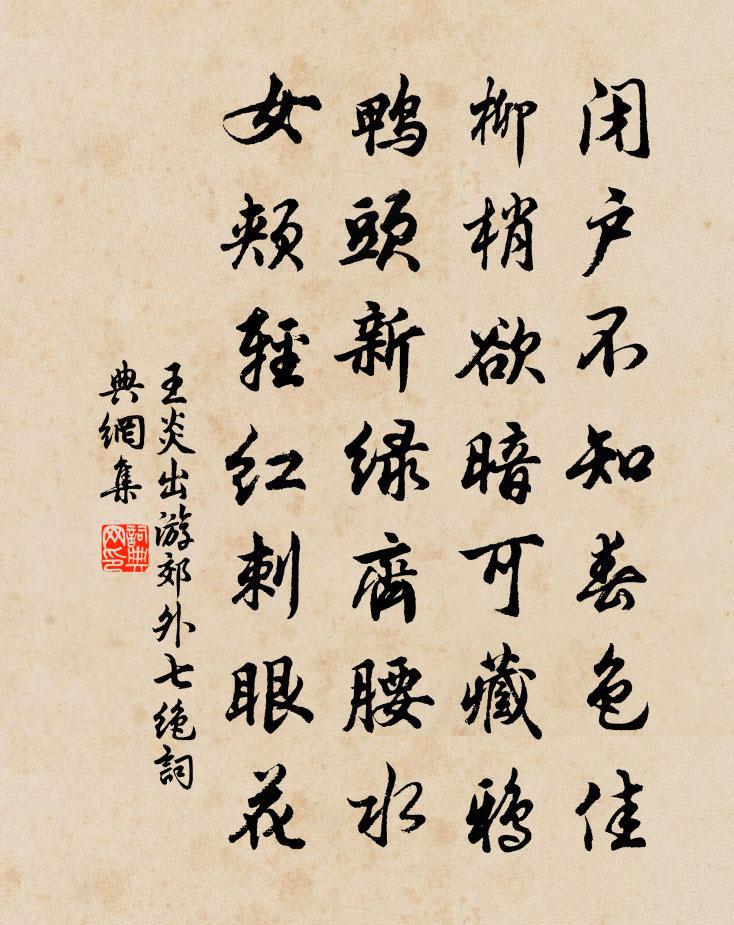 闭户不知春色佳
柳梢欲暗可藏鸦
鸭頭新绿齊腰水
女颊轻红刺眼花
王炎出游郊外七绝詞
典網集
詞典网印